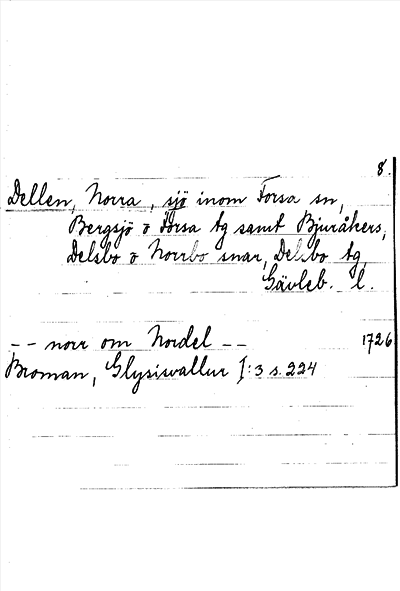 8.
Dellen, Norra, sjö inom Forsa sn,
Bergsjö o Forsa tg samt Bjuråkers,
Delsbo o Norrbo snar, Delsbo tg,
Gävleb. l.
-- norr om Nordel -- 1726
Broman, Glysisvallur I:3 s. 224